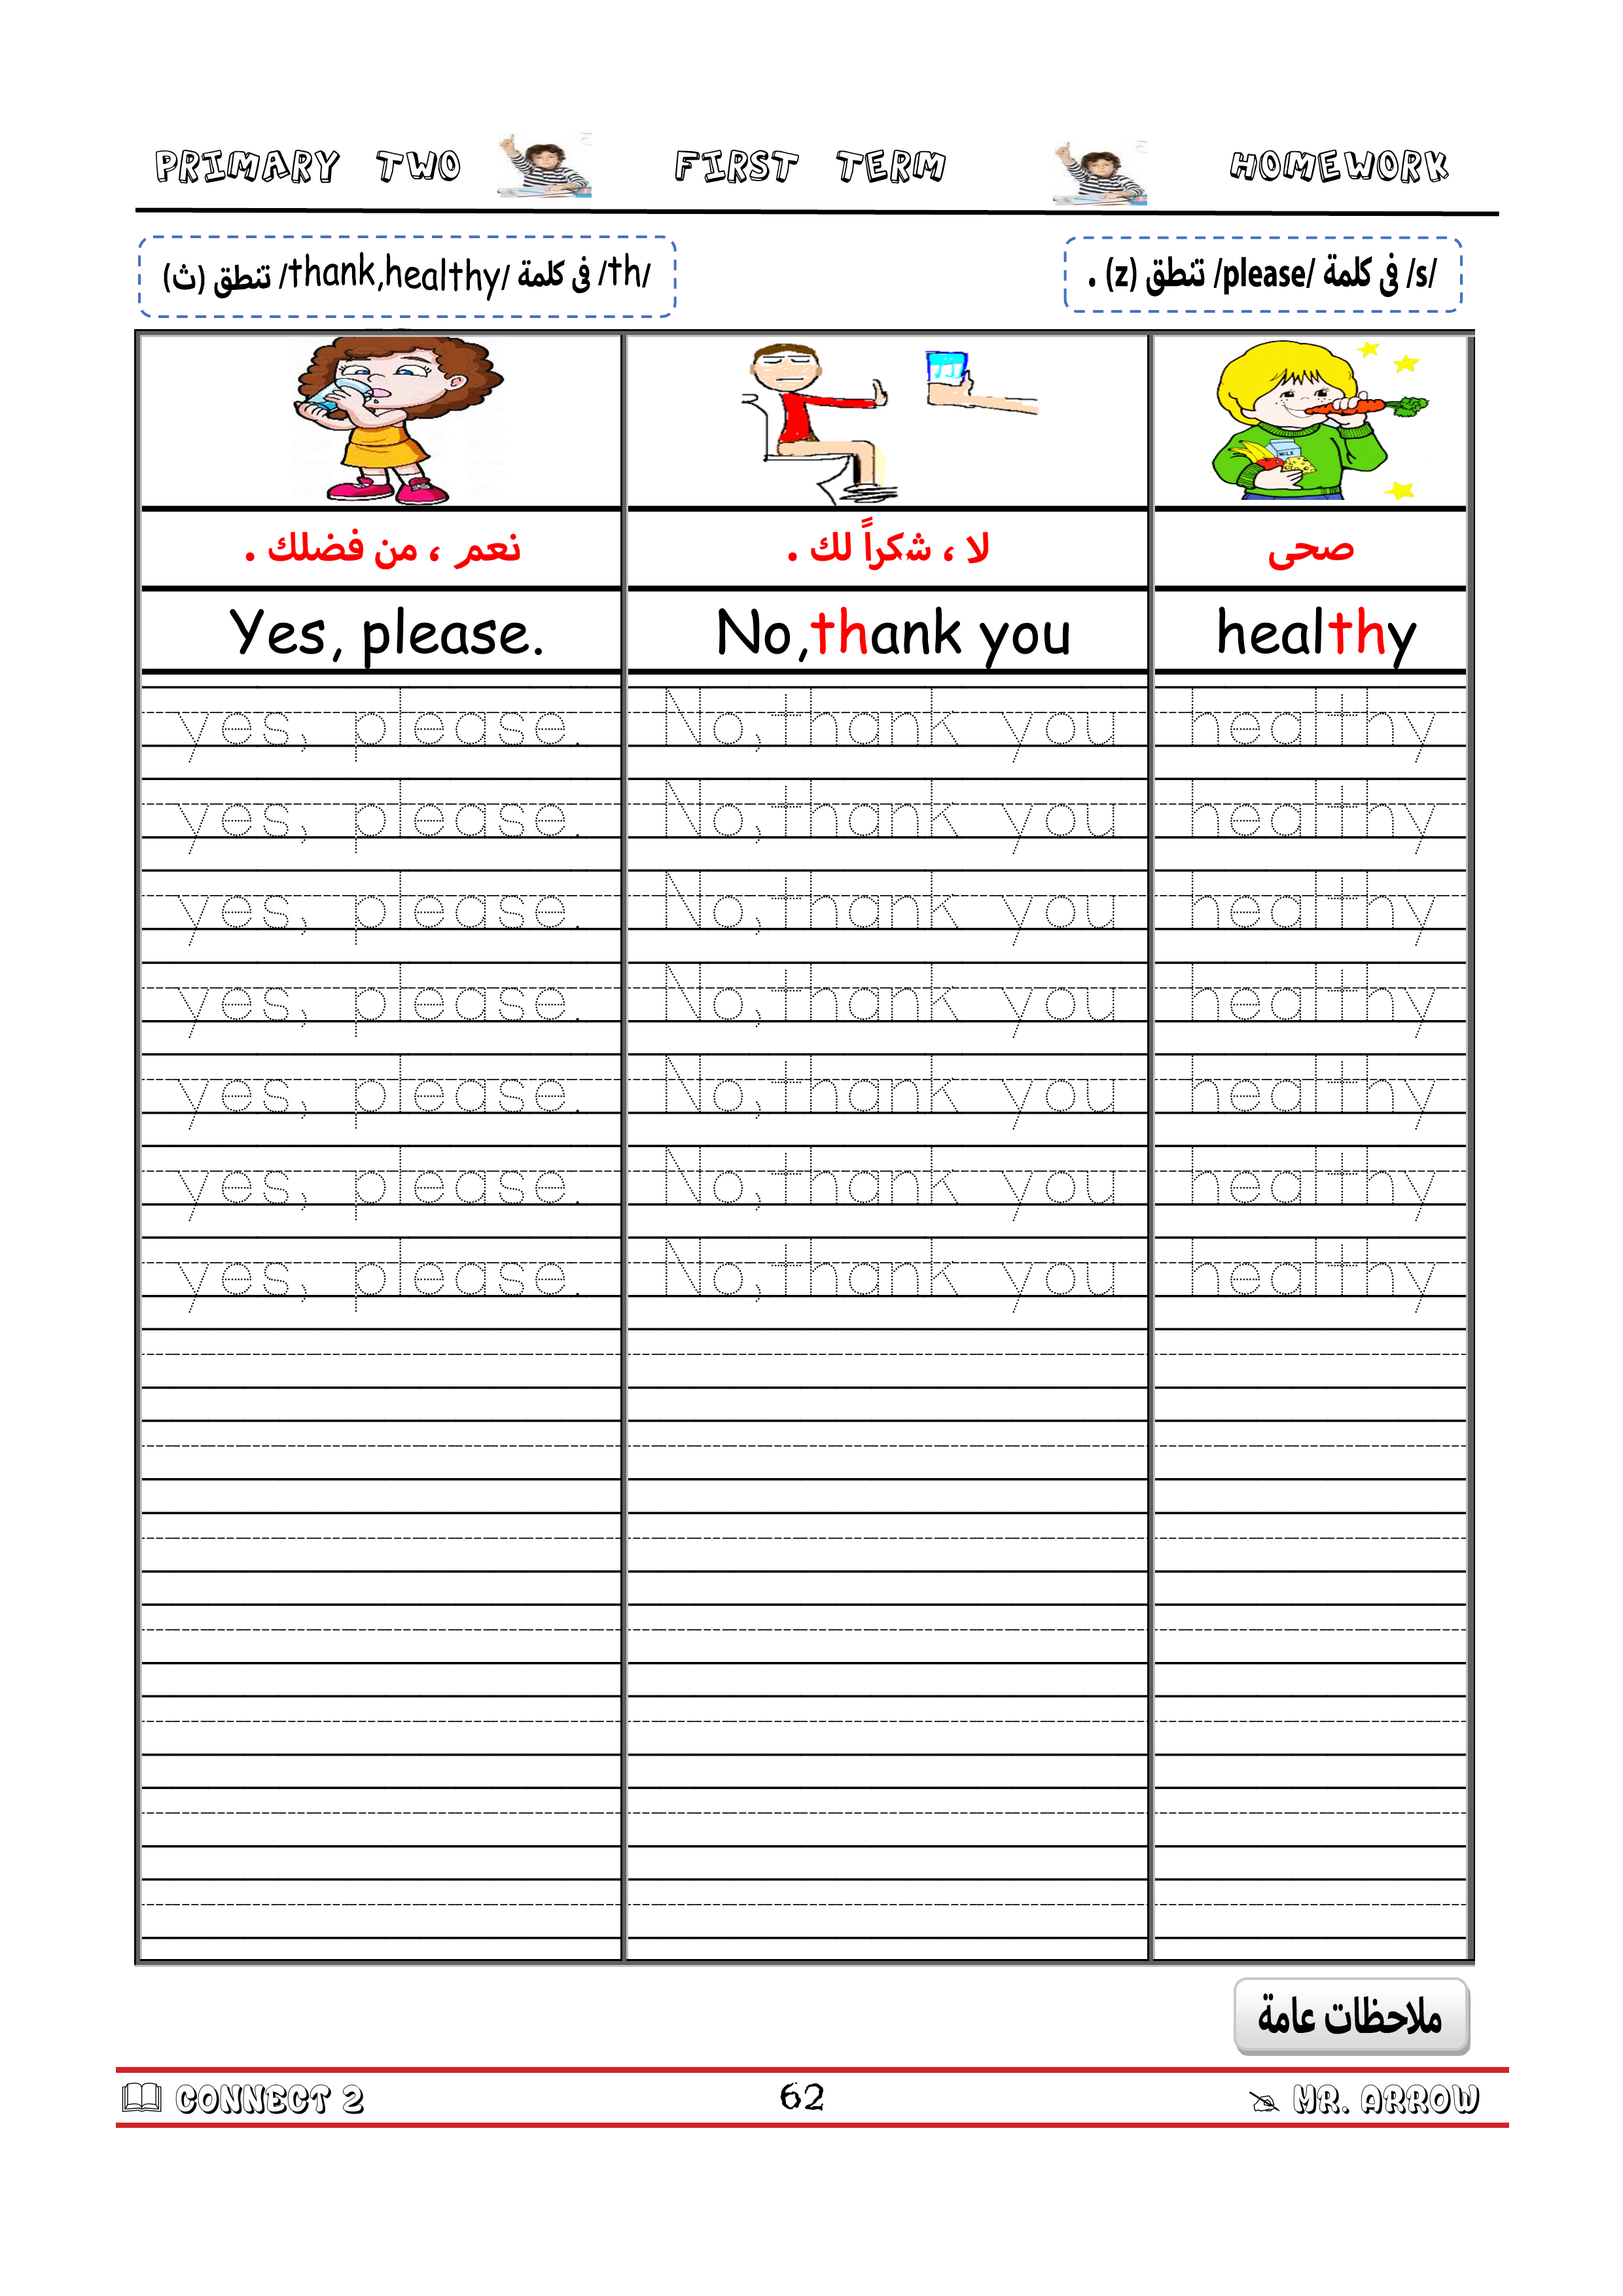 PRIMARY TWO FIRST TERM HOMEWORK
/th/ فى كلمة /thank,healthy/ تنطق (ث)
/s/ فى كلمة /please/ تنطق (z) .
نعم ، من فضلك .
لا ، شكراً لك .
صحى
Yes, please.
No,thank you
healthy
yes, please. No,thank you healthy
yes, please. No,thank you healthy
yes, please. No,thank you healthy
yes, please. No,thank you healthy
yes, please. No,thank you healthy
yes, please. No,thank you healthy
yes, please. No,thank you healthy
ملاحظات عامة
CONNECT 2 62 MR. ARROW